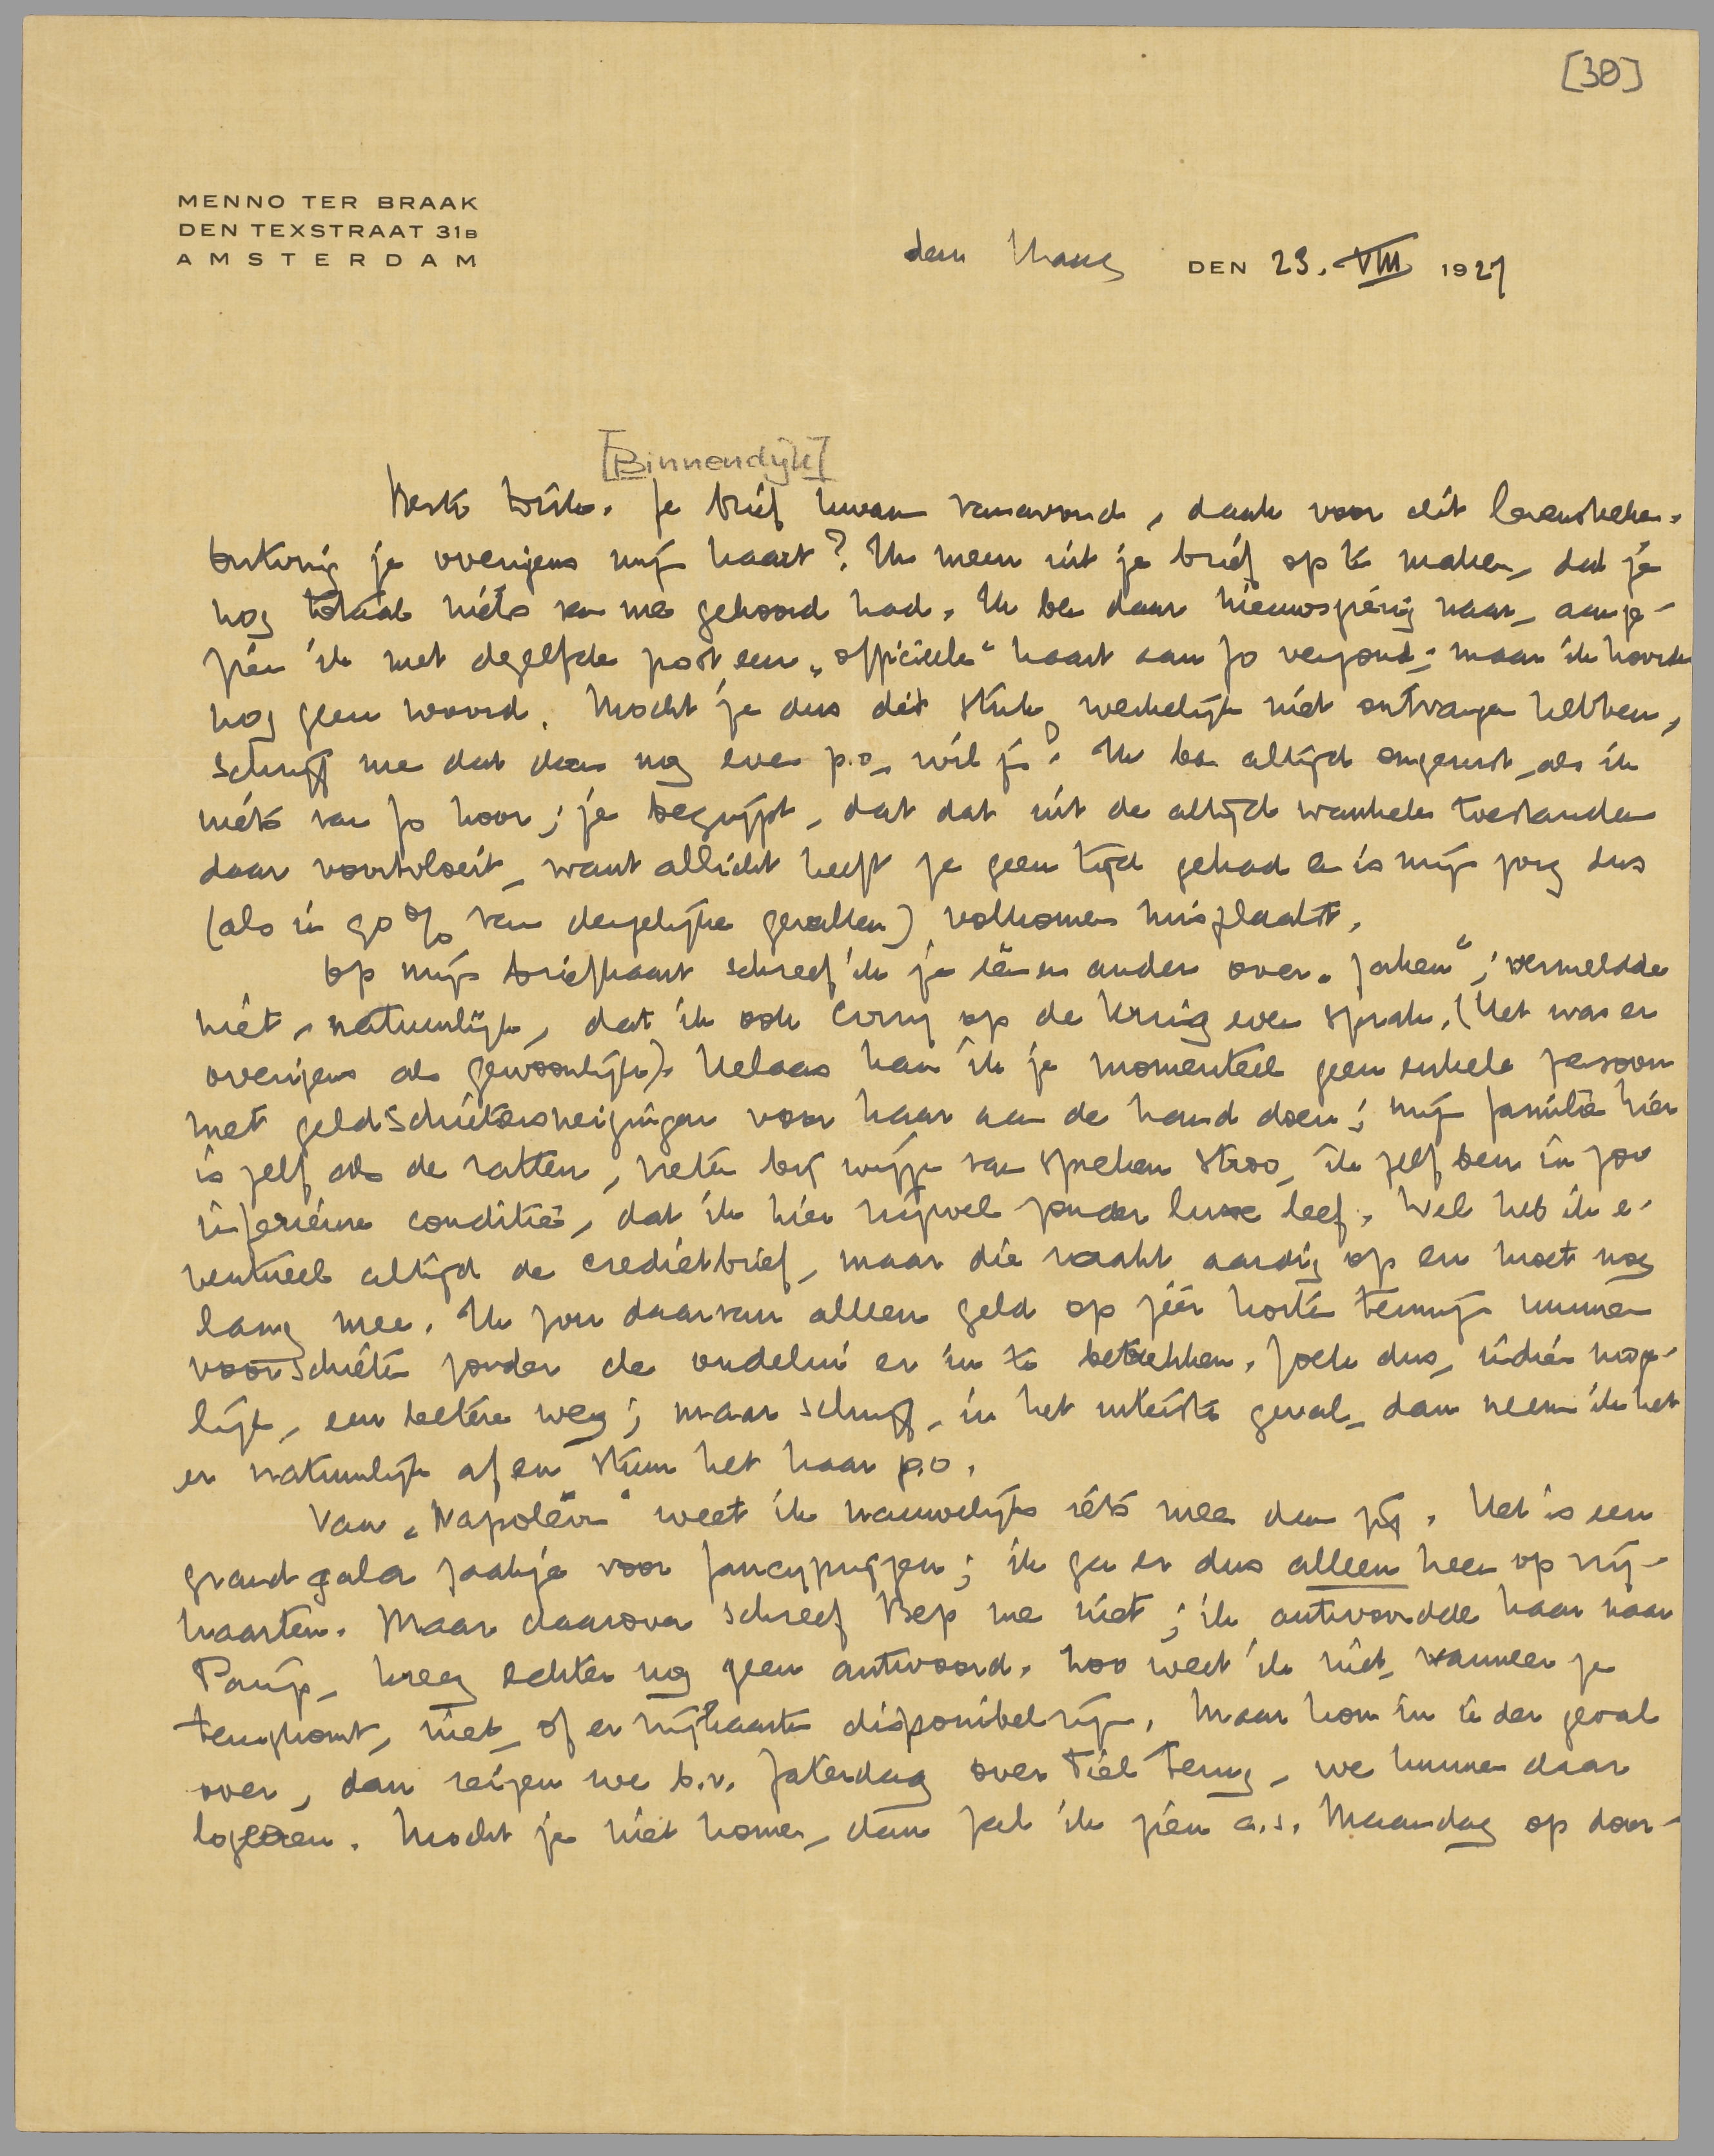 [30]
MENNO TER BRAAK
DEN TEXSTRAAT 31B
AMSTERDAM
den Haag DEN 23. VIII 1927
[Binnendijk]
Beste Dirk. Je brief kwam vanavond, dank voor dit levensteken.
Ontving je overigens mijn kaart? Ik meen uit je brief op te maken, dat je
nog totaal niets van me gehoord had. Ik ben daar nieuwsgierig naar, aange-
zien ik met dezelfde post een „officieele" kaart aan Jo verzond; maar ik hoorde
nog geen woord. Mocht je dus dit stuk werkelijk niet ontvangen hebben,
schrijf me dat dan nog even p.o., wil je? Ik ben altijd ongerust, als ik
niets van Jo hoor; je begrijpt, dat dat uit de altijd wankele toestanden
daar voortvloeit, want allicht heeft ze geen tijd gehad en is mijn zorg dus
(als in 90% van dergelijke gevallen) volkomen misplaatst.
Op mijn briefkaart schreef ik je één en ander over „zaken"; vermeldde
niet, natuurlijk, dat ik ook Corry op de Kring even sprak. (Het was er
overigens als gewoonlijk). Helaas kan ik je momenteel geen enkele persoon
met geldschietersneigingen voor haar aan de hand doen; mijn familie hier
is zelf als de ratten, bij wijze van spreken stroo, ik zelf ben in zoo
inferieure conditie, dat ik hier nijwel zonder luxe leef. Wel heb ik e-
ventueel altijd de credietbrief, maar die raakt aardig op en moet nog
lang mee. Ik zou daarvan alleen geld op zéér korte termijn kunnen
voorschieten zonder de oudelui er in te betrekken. Zoek dus, indien moge-
lijk, een betere weg; maar schrijf, in het uiterste geval, dan neem ik het
er natuurlijk af en stuur het haar p.o.
Van „Napoléon" weet ik nauwelijks iets meer dan jij. Het is een
grand gala zaakje voor fancyprijzen; ik ga er dus alleen heen op vrij-
kaarten. Maar daarover schreef Bep me niet; ik antwoordde haar naar
Parijs, kreeg echter nog geen antwoord. Zoo weet ik niet, wanneer ze
terugkomt, niet, of er vrijkaarten disponibel zijn. Maar kom in ieder geval
over, dan reizen we b.v. Zaterdag over Tiel terug, we kunnen daar
logeeren. Mocht je niet komen, dan zal ik zien a.s. Maandag op door-